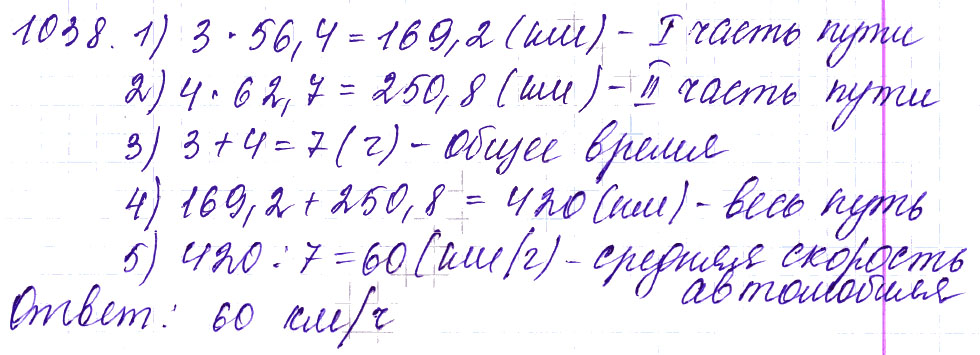 1038. 1) 3 · 56,4 = 169,2 (км) - I часть пути
2) 4 · 62,7 = 250,8 (км) - II часть пути
3) 3 + 4 = 7 (г) - общее время
4) 169,2 + 250,8 = 420 (км) - весь путь
5) 420 : 7 = 60 (км/г) - средняя скорость
автомобиля
Ответ: 60 км/ч